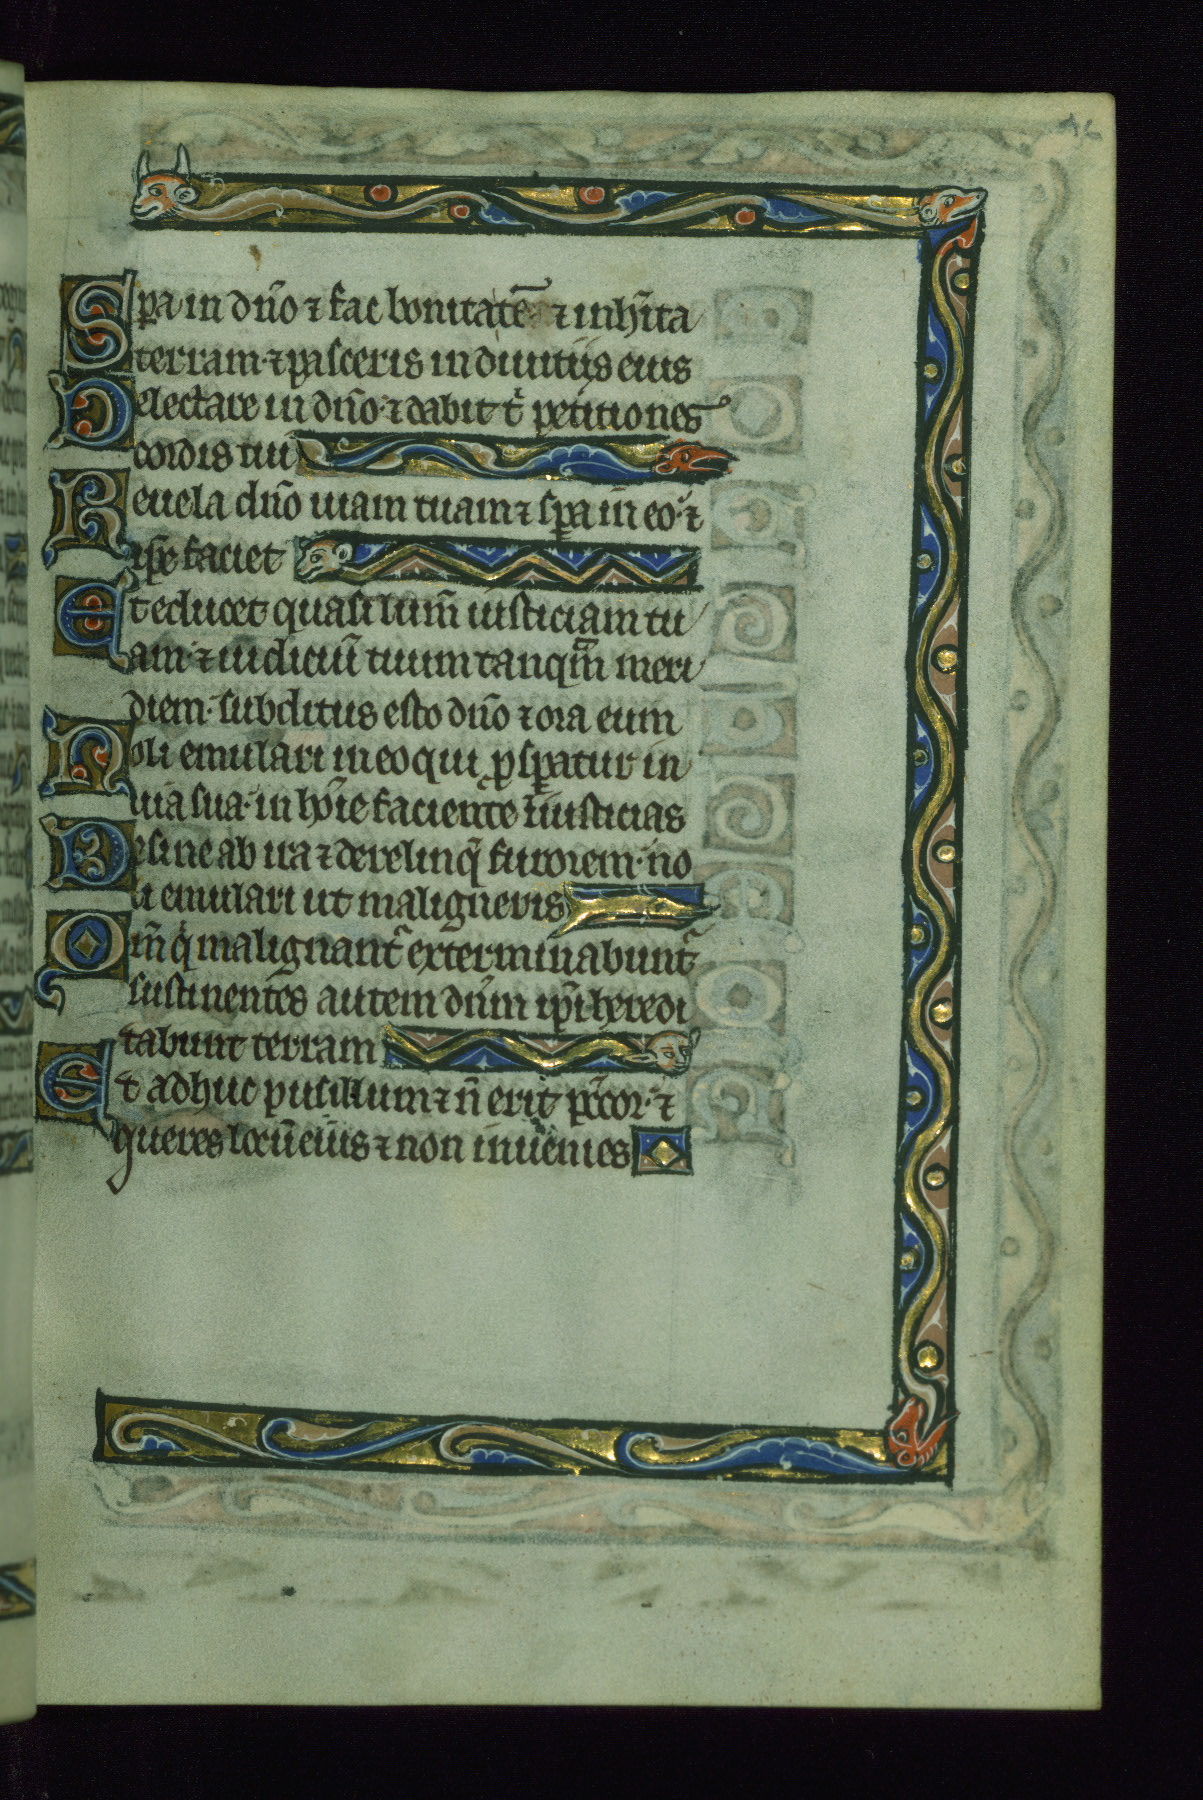 Spa in dño ⁊ fac bonitatē ⁊ inhīta
terram ⁊ pasceris in diuitijs eius
Delectare in dño ⁊ dabit t̄ petitiones
cordis tui
Reuela dño uiam tuam ⁊ spa in eo ⁊
ipse faciet
Et educet quasi lum̄ iusticiam tu
am ⁊ iudiciū tuum tanqm̄ meri
diem. subditus esto dño ⁊ ora eum
Noli emulari in eo qui pspatur in
uia sua. in hoīe faciente iniusticias
Desine ab ira ⁊ derelinq̄ furorem. no
li emulari ut maligneris
Qm̄ q̄ malignant̄ exterminabunt̄
sustinentes autem dñm ip̄i heredi
tabunt terram
Et adhuc pusillum ⁊ ñ erit p̄c̄cor. ⁊
queres locū eius ⁊ non inuenies